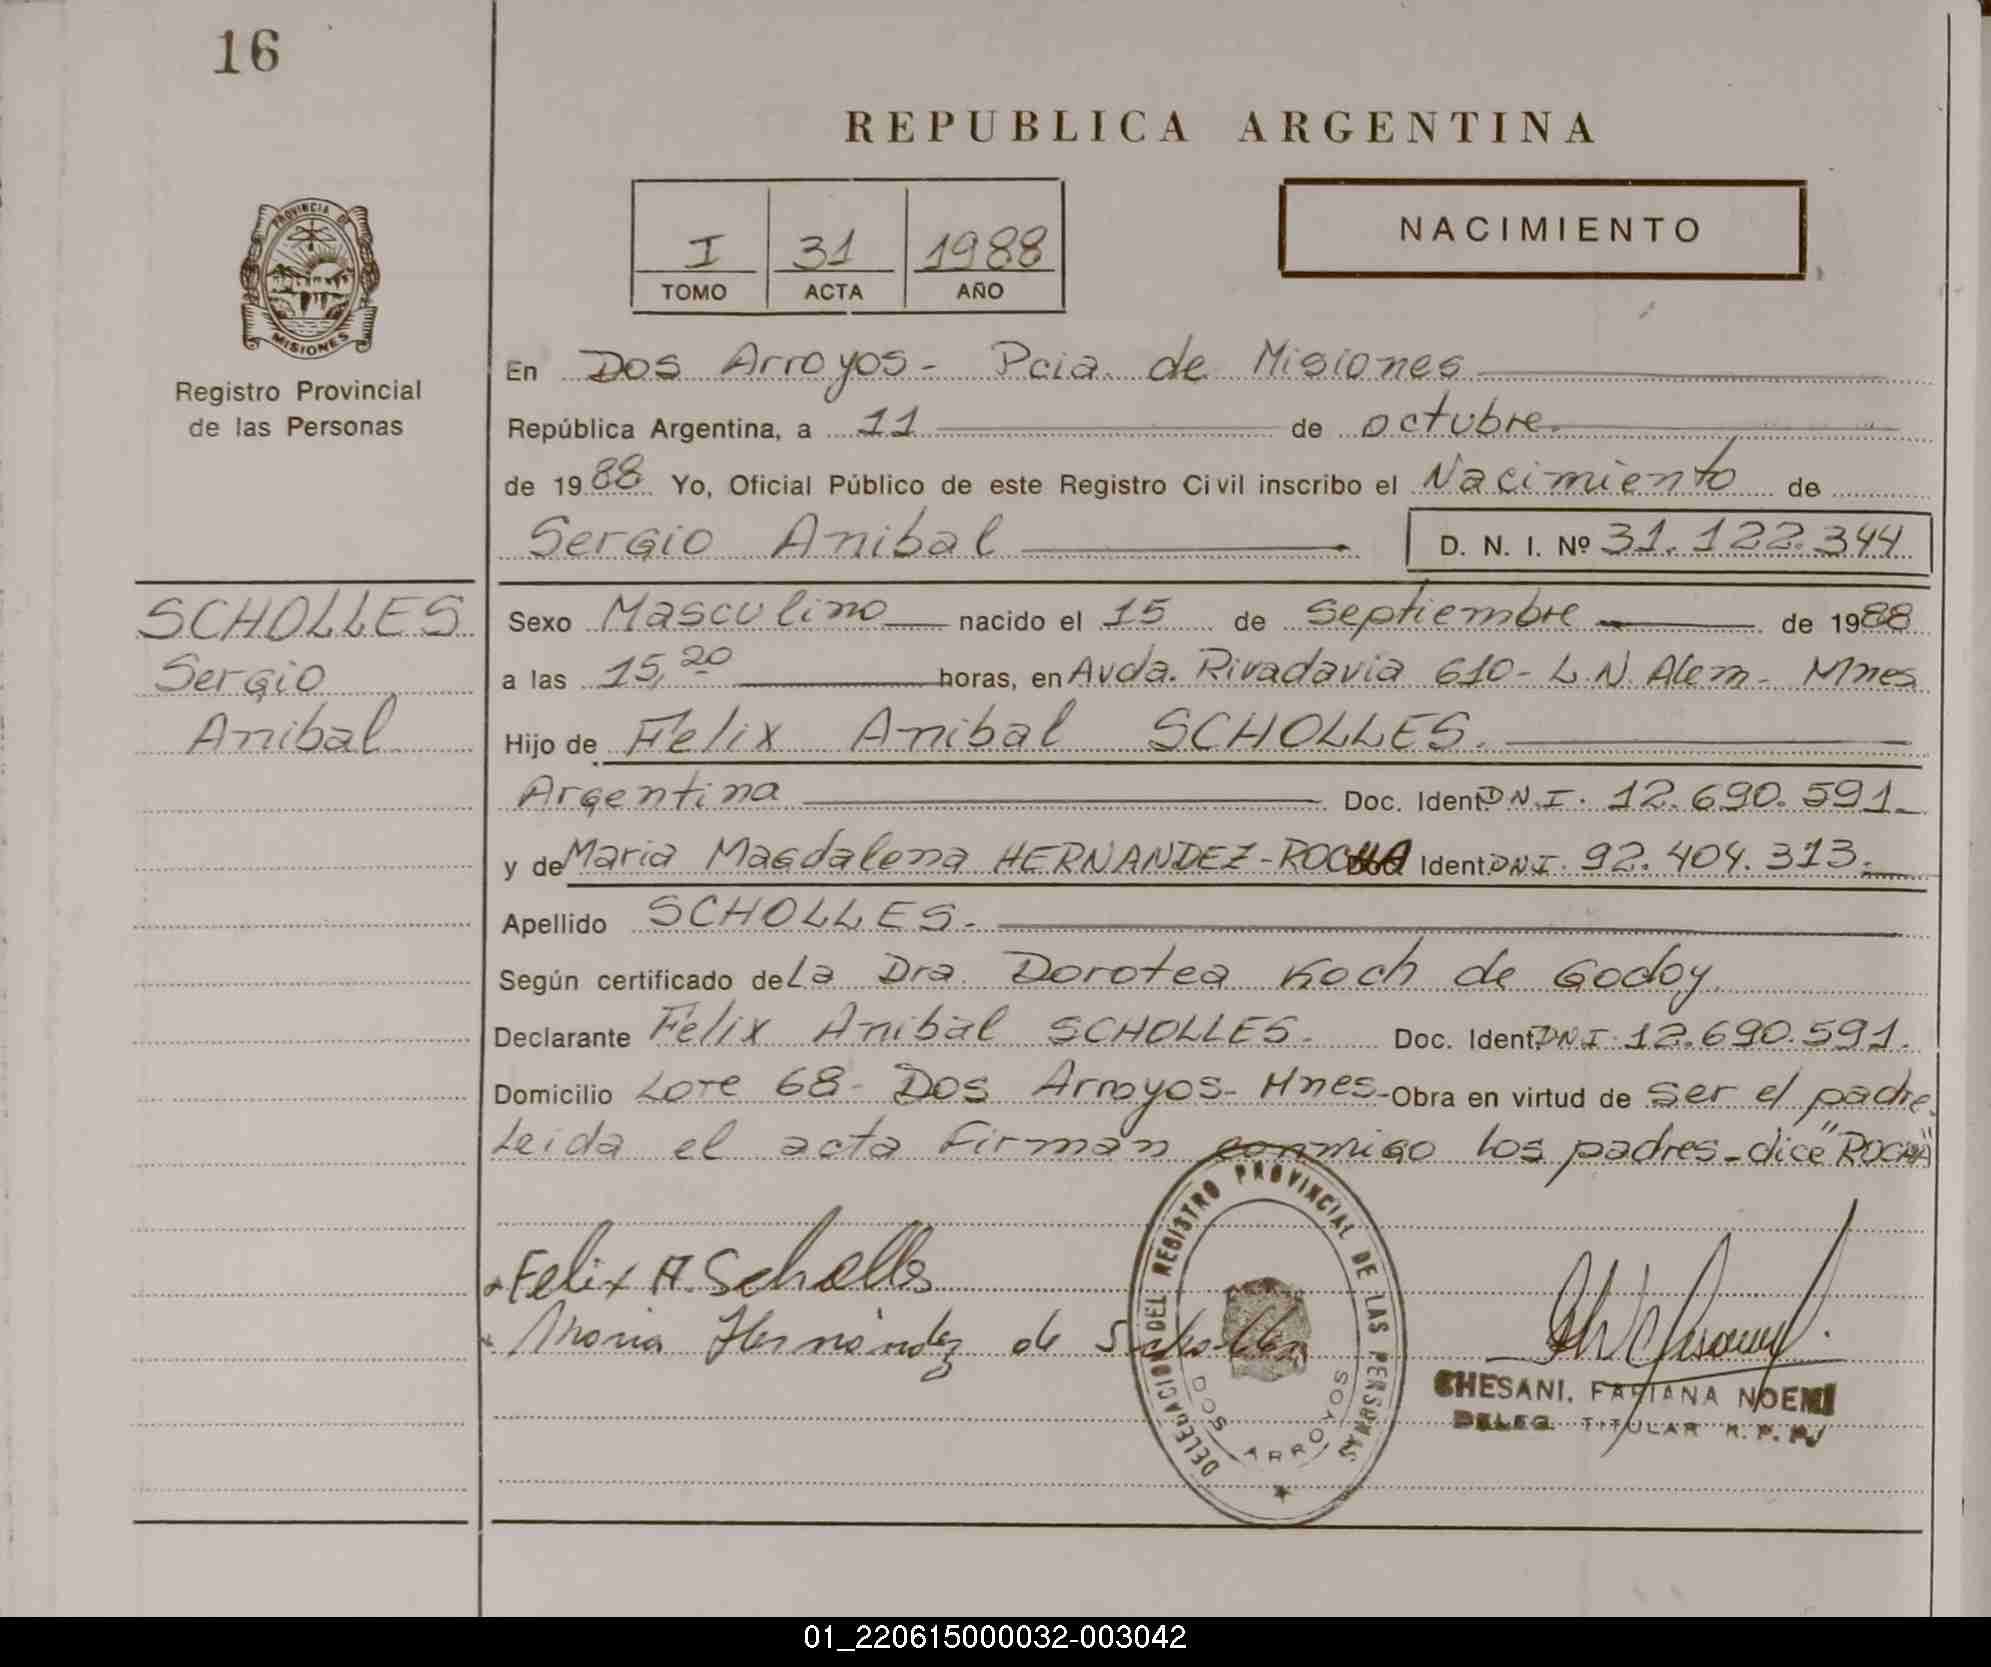 16
REPUBLICA ARGENTINA
NACIMIENTO
I 31 1988
TOMO ACTA AÑO
PROVINCIA DE
MISIONES
Registro Provincial
de las Personas
En Dos Arroyos - Pcia. de Misiones
República Argentina, a 11 de octubre
de 1988 Yo, Oficial Público de este Registro Civil inscribo el Nacimiento de
Sergio Anibal D. N. I. Nº 31.122.344
SCHOLLES
Sergio
Anibal
Sexo Masculino nacido el 15 de septiembre de 1988
a las 15,20 horas, en Avda. Rivadavia 610 - L.N. Alem - Mnes
Hijo de Felix Anibal SCHOLLES.
Argentina Doc. Ident. D.N.I. 12.690.591
y de Maria Magdalena HERNANDEZ-ROCHA Ident. DNI. 92.404.313.
Apellido SCHOLLES.
Según certificado de La Dra. Dorotea Koch de Godoy
Declarante Felix Anibal SCHOLLES. Doc. Ident. DNI. 12.690.591.
Domicilio Lote 68 - Dos Arroyos - Mnes - Obra en virtud de ser el padre.
Leida el acta firman conmigo los padres - dice "ROCHA"
Felix A. Scholles
Maria Hernández de Scholles
DELEGACION DEL REGISTRO PROVINCIAL DE LAS PERSONAS
DOS ARROYOS
CHESANI, FABIANA NOEMI
DELEG. TITULAR R. P. PJ
01_220615000032-003042